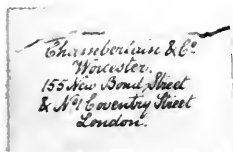 Chamberlain & Co
Worcester.
155 New Bond Street
& No 1 Coventry Street
London.